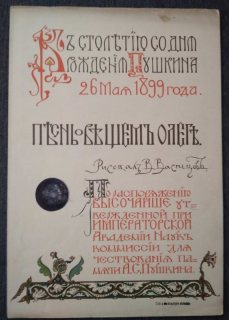 Въ столѣтію со дня
рожденія Пушкина
26 Мая 1899 года.
Пѣснь о вѣщемъ Олегѣ.
Рисовалъ В. Васнецовъ
По распоряженію
высочайше ут-
вержденной при
Императорской
Академіи Наукъ
коммиссіи для
чествованія па-
мяти А. С. Пушкина.